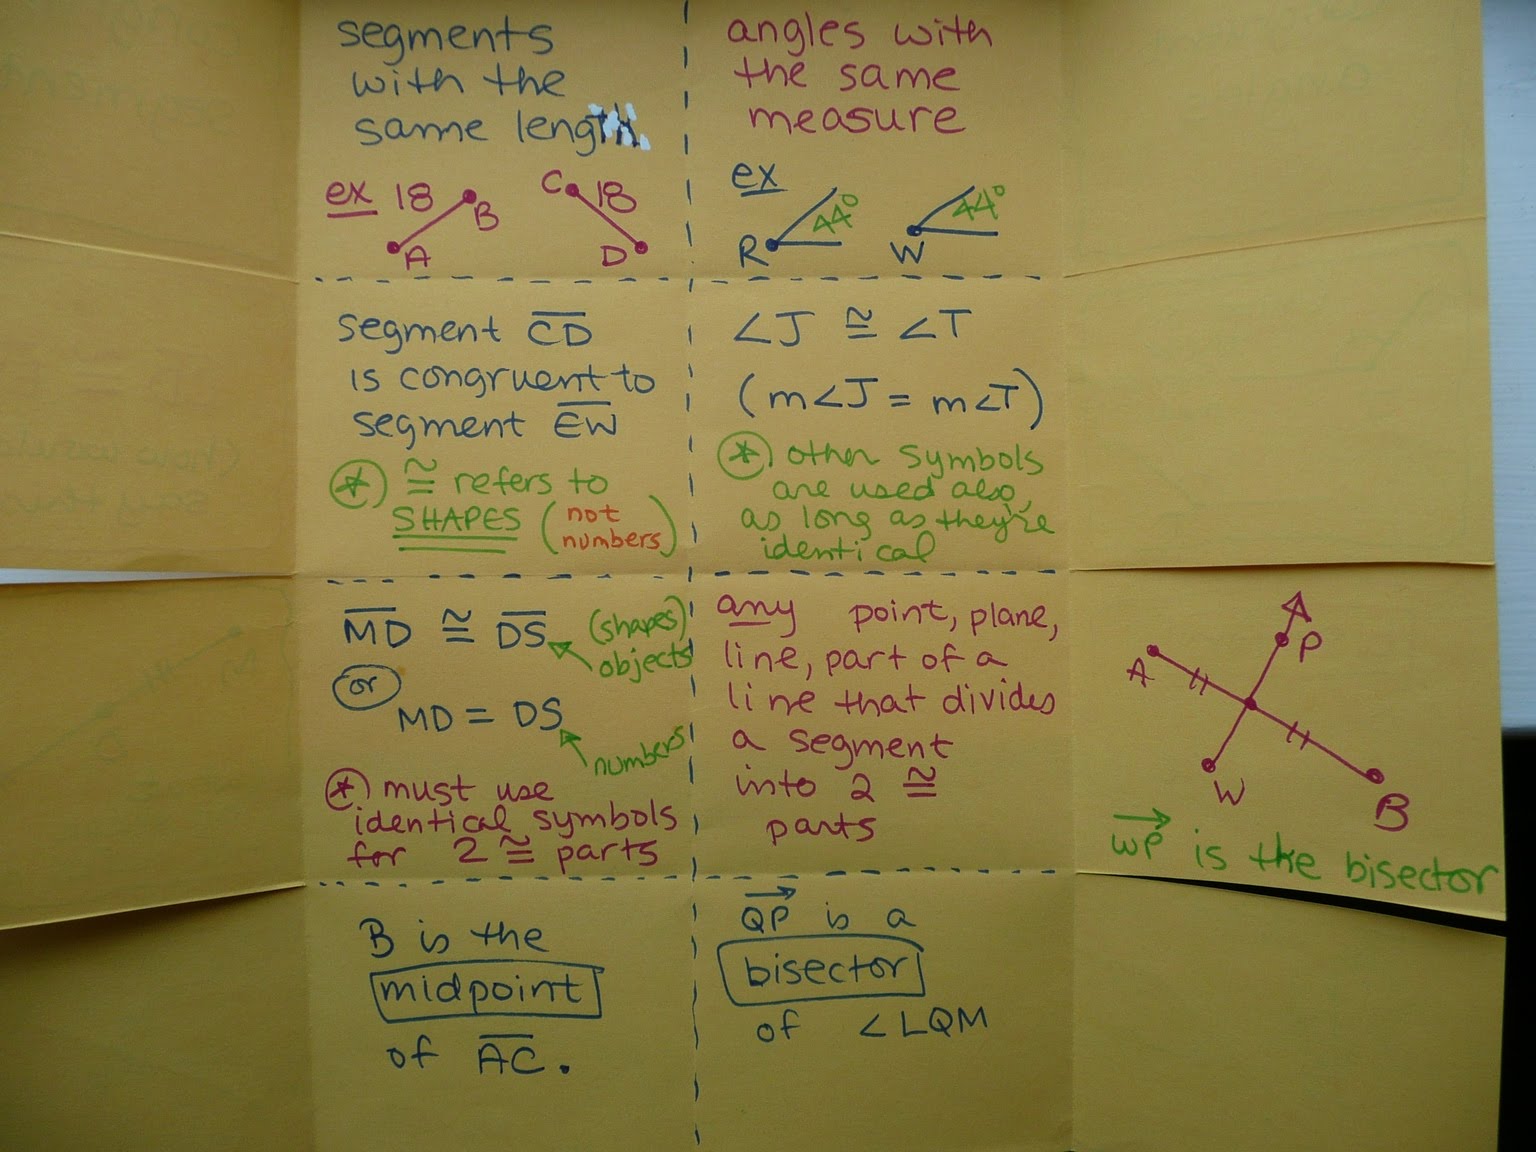 segments
with the
same length.
ex 18
B
A
C
18
D
angles with
the same
measure
ex
44°
R
44°
W
segment C̅D̅
is congruent to
segment E̅W̅
* ≅ refers to
SHAPES (not
numbers)
∠J ≅ ∠T
(m∠J = m∠T)
* other symbols
are used also,
as long as they're
identical
M̅D̅ ≅ D̅S̅
(shapes)
objects
or
MD = DS
numbers
* must use
identical symbols
for 2 ≅ parts
any point, plane,
line, part of a
line that divides
a segment
into 2 ≅
parts
A
P
W
B
W͞P⃗ is the bisector
B is the
midpoint
of A̅C̅.
Q͞P⃗ is a
bisector
of ∠LQM